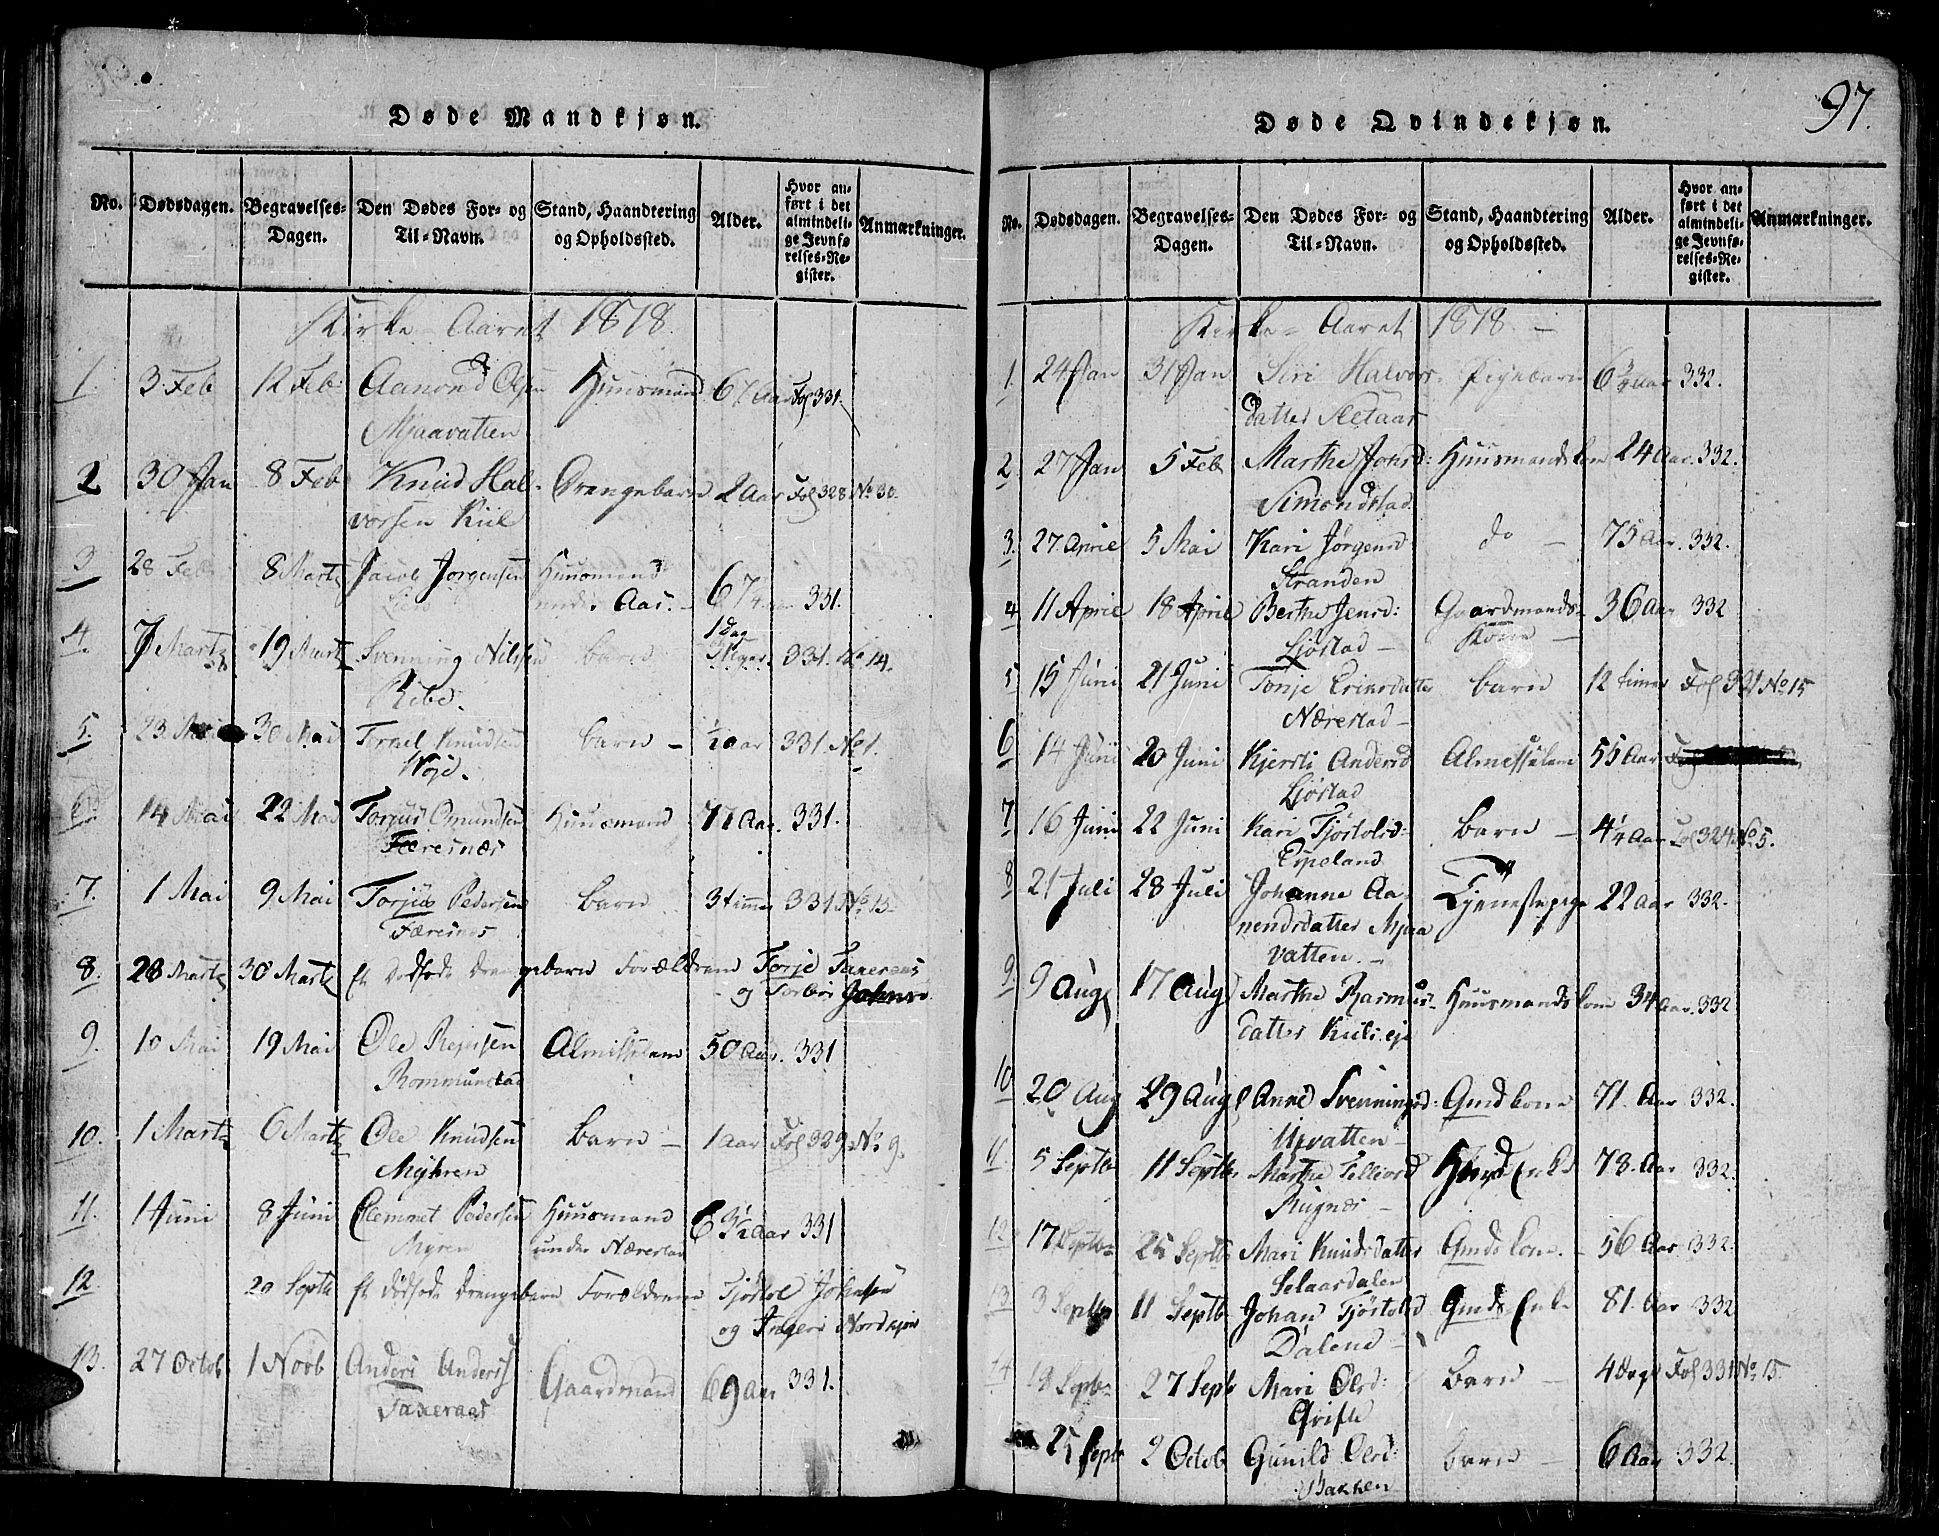 Døde Mandkjøn.
No. Dødsdagen. Begravelses-Dagen. Den Dødes For- og Til-Navn. Stand, Haandtering og Opholdssted. Alder. Hvor anført i det almindelige Jevnførelses-Register. Anmærkninger.
Kirke-Aaret 1818.
1. 3 Feb 12 Feb: Aanond Olsen Huusmand 67 Aar Fol 331.
Mjaavatten
2 30 Jan 8 Feb Knud Hal- Drengebarn 2 Aar Fol 328 No 30.
vorsen Kiil
3 28 Feb 8 Martz Jacob Jørgensen Huusmand
under Aas. 67 331.
4. 7 Martz 19 Martz Svenning Nilsen barn 1 Dag 331. No 14.
Ribe.
5. 23 Mai 30 Mai Torkel Knudsen barn – ½ Aar 331 No 1.
Noje.
14 Mai 22 Mai Torjus Omundsen Huusmand 77 Aar. 331.
Færesnæs
7. 1 Mai 9 Mai Torjus Pedersen barn 3 timer 331 No 15
Færesnes
8. 28 Martz 30 Martz Et Dødfødt Drengebarn Forældrene Torje
og Torbør
9. 10 Mai 19 Mai Ole Almisselem 50 Aar. 331
Rommundstad
10. 1 Martz 6 Martz Ole Knudsen barn – 1 Aar Fol 329 No 9.
Myhren
11. 1 Juni 8 Juni Clemmet Pedersen Huusmand 63½ Aar 331
Myren under Nærestad
12. 20 Septb Et Dødfødt Drengebarn Forældrene Tjøstol Johnsen
og Ingeri
13. 27 Octob 1 Novb Anders Anders Gaardmand 69 Aar 331.
Taxeraas
97.
Døde Qvindekjøn.
No. Dødsdagen. Begravelses-Dagen. Den Dødes For- og Til-Navn. Stand, Haandtering og Opholdssted. Alder. Hvor anført i det almindelige Jevnførelses-Register. Anmærkninger.
Kirke-Aaret 1818. –
1. 24 Jan 31 Jan Siri Halvors- Pigebarn 332.
datter Selaas
2. 27 Jan 5 Feb Marthe Johsd: Huusmandskone 24 Aar. 332.
Simondstad
3. 27 April 5 Mai Kari Jørgensd do – 75 Aar. 332.
Stranden
4 11 April 18 April Berthe Jensd: Gaardmands- 36 Aar 332
Ljøstad – Kone –
5 15 Juni 21 Juni Tonje Eriksdatter barn 12 timer Fol 331 No 15
Nærestad –
6 14 Juni 20 Juni Kjersti Andersd Almesselem 55 Aar
Ljøstad
7 16 Juni 22 Juni Kari Tjøstolsd: barn – 4¼ Aar Fol 324 No 5.
Espeland
8 21 Juli 28 Juli Johanne Aa- Tjenestepige 22 Aar 332.
nondsdatter Mjaa
vatten. –
9 9 Aug 17 Aug Marthe Rasmus- Huusmandskone 34 Aar. 332
datter
10 20 Aug 29 Aug Anne Svenningsd: Gmdkone 71. Aar 332.
Uxvatten –
11 5 Septb 11 Septb Marthe Tellevsd Enke 78. Aar 332.
Rugnes –
12 17 Septb 25 Septb Mari Knudsdatter Gmds kone. – 56 Aar 332.
Selaasdalen
13 3 Septb 11 Septb Johan Tjøstolsd Gmds Enke 81. Aar 332
Dalene –
14 19 Septb 27 Septb Mari Olsd: barn – 4 Dage Fol 331 No 15.
Qvifte
25 Septb 2 Octob Gunild Olsd: barn – 6 Aar 332.
Bakken